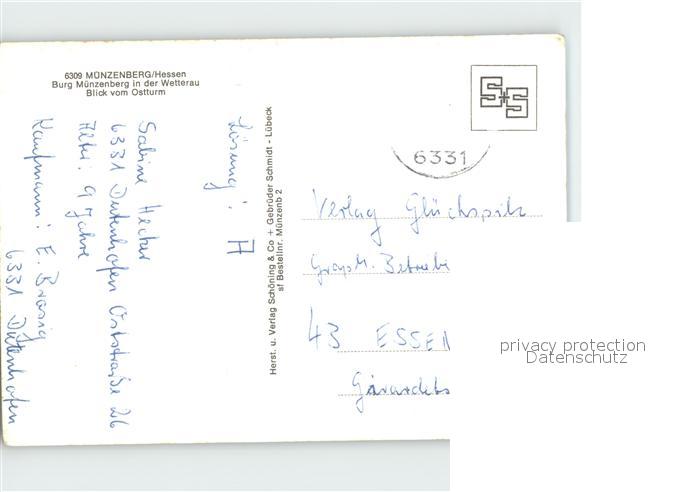 6309 MÜNZENBERG/Hessen
Burg Münzenberg in der Wetterau
Blick vom Ostturm
Lösung: A
Sabine Hecker
6331 Dutenhofen Oststraße 26
Alter: 9 Jahre
Kaufmann: E. Brosig
6331 Dutenhofen
Herst. u. Verlag Schöning & Co + Gebrüder Schmidt - Lübeck
sf Bestellnr. Münzenb 2
S+S
6331
Verlag Glückspilz
Graph. Betriebe
43 ESSEN
Girardets
privacy protection
Datenschutz